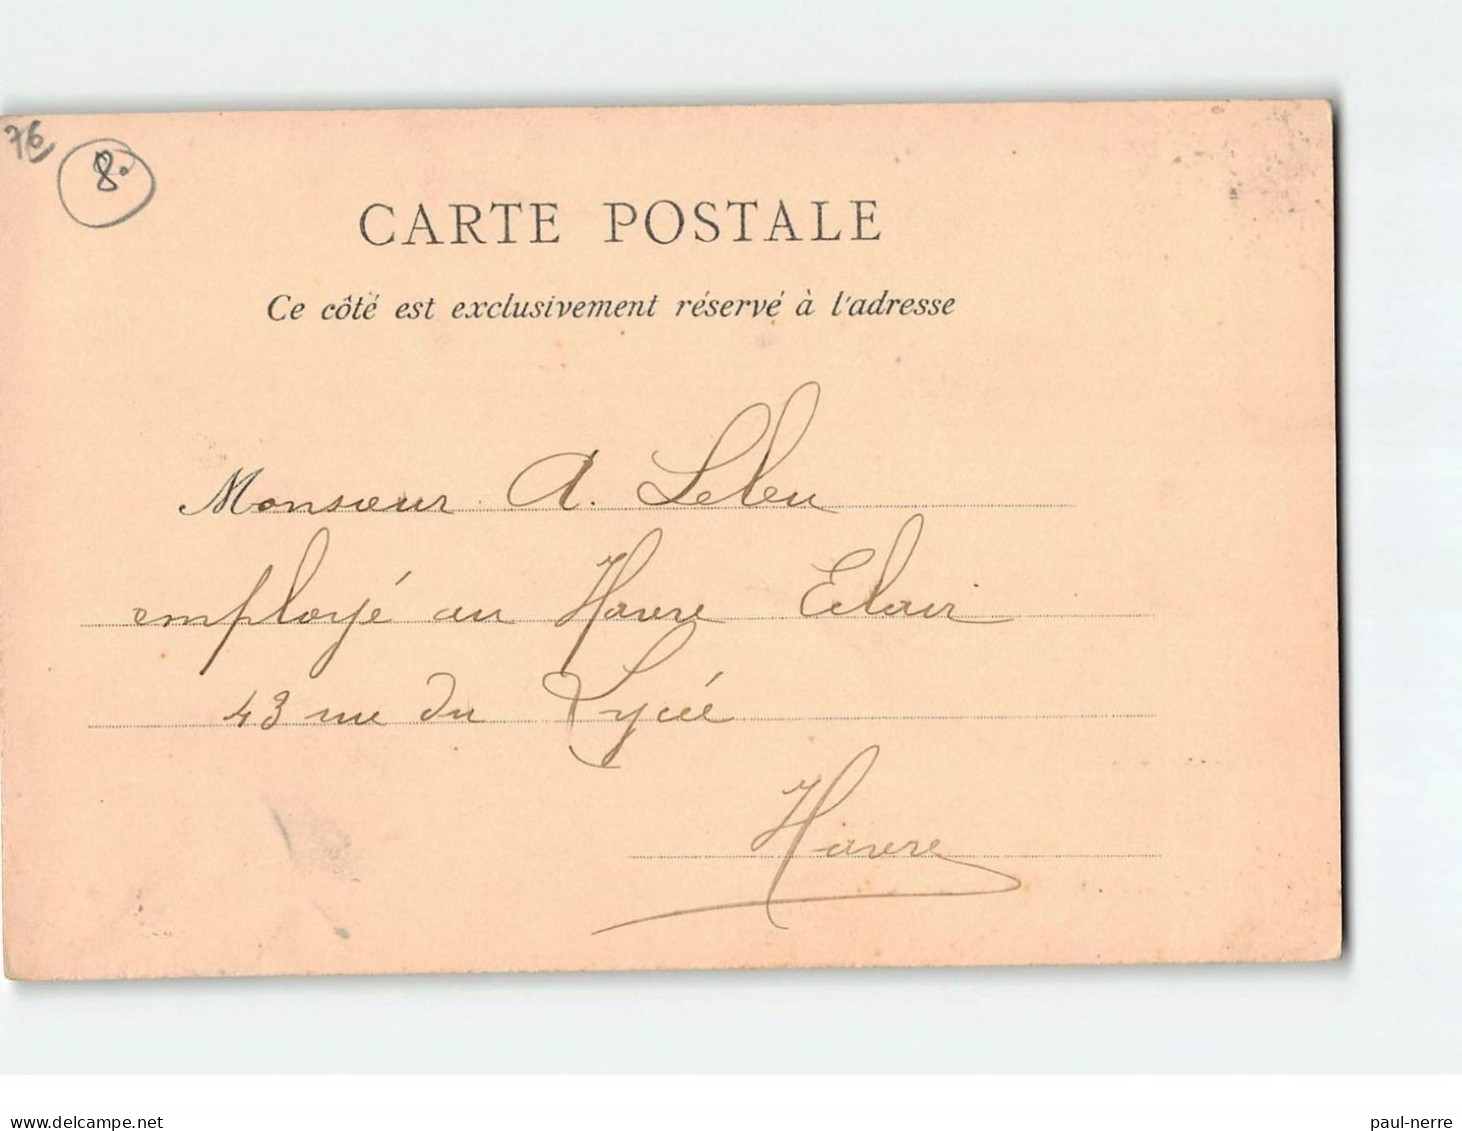 76
8.
CARTE POSTALE
Ce côté est exclusivement réservé à l'adresse
Monsieur A. Leleu
employé au Havre Eclair
43 rue du Lycée
Havre
delcampe.net
paul-nerre